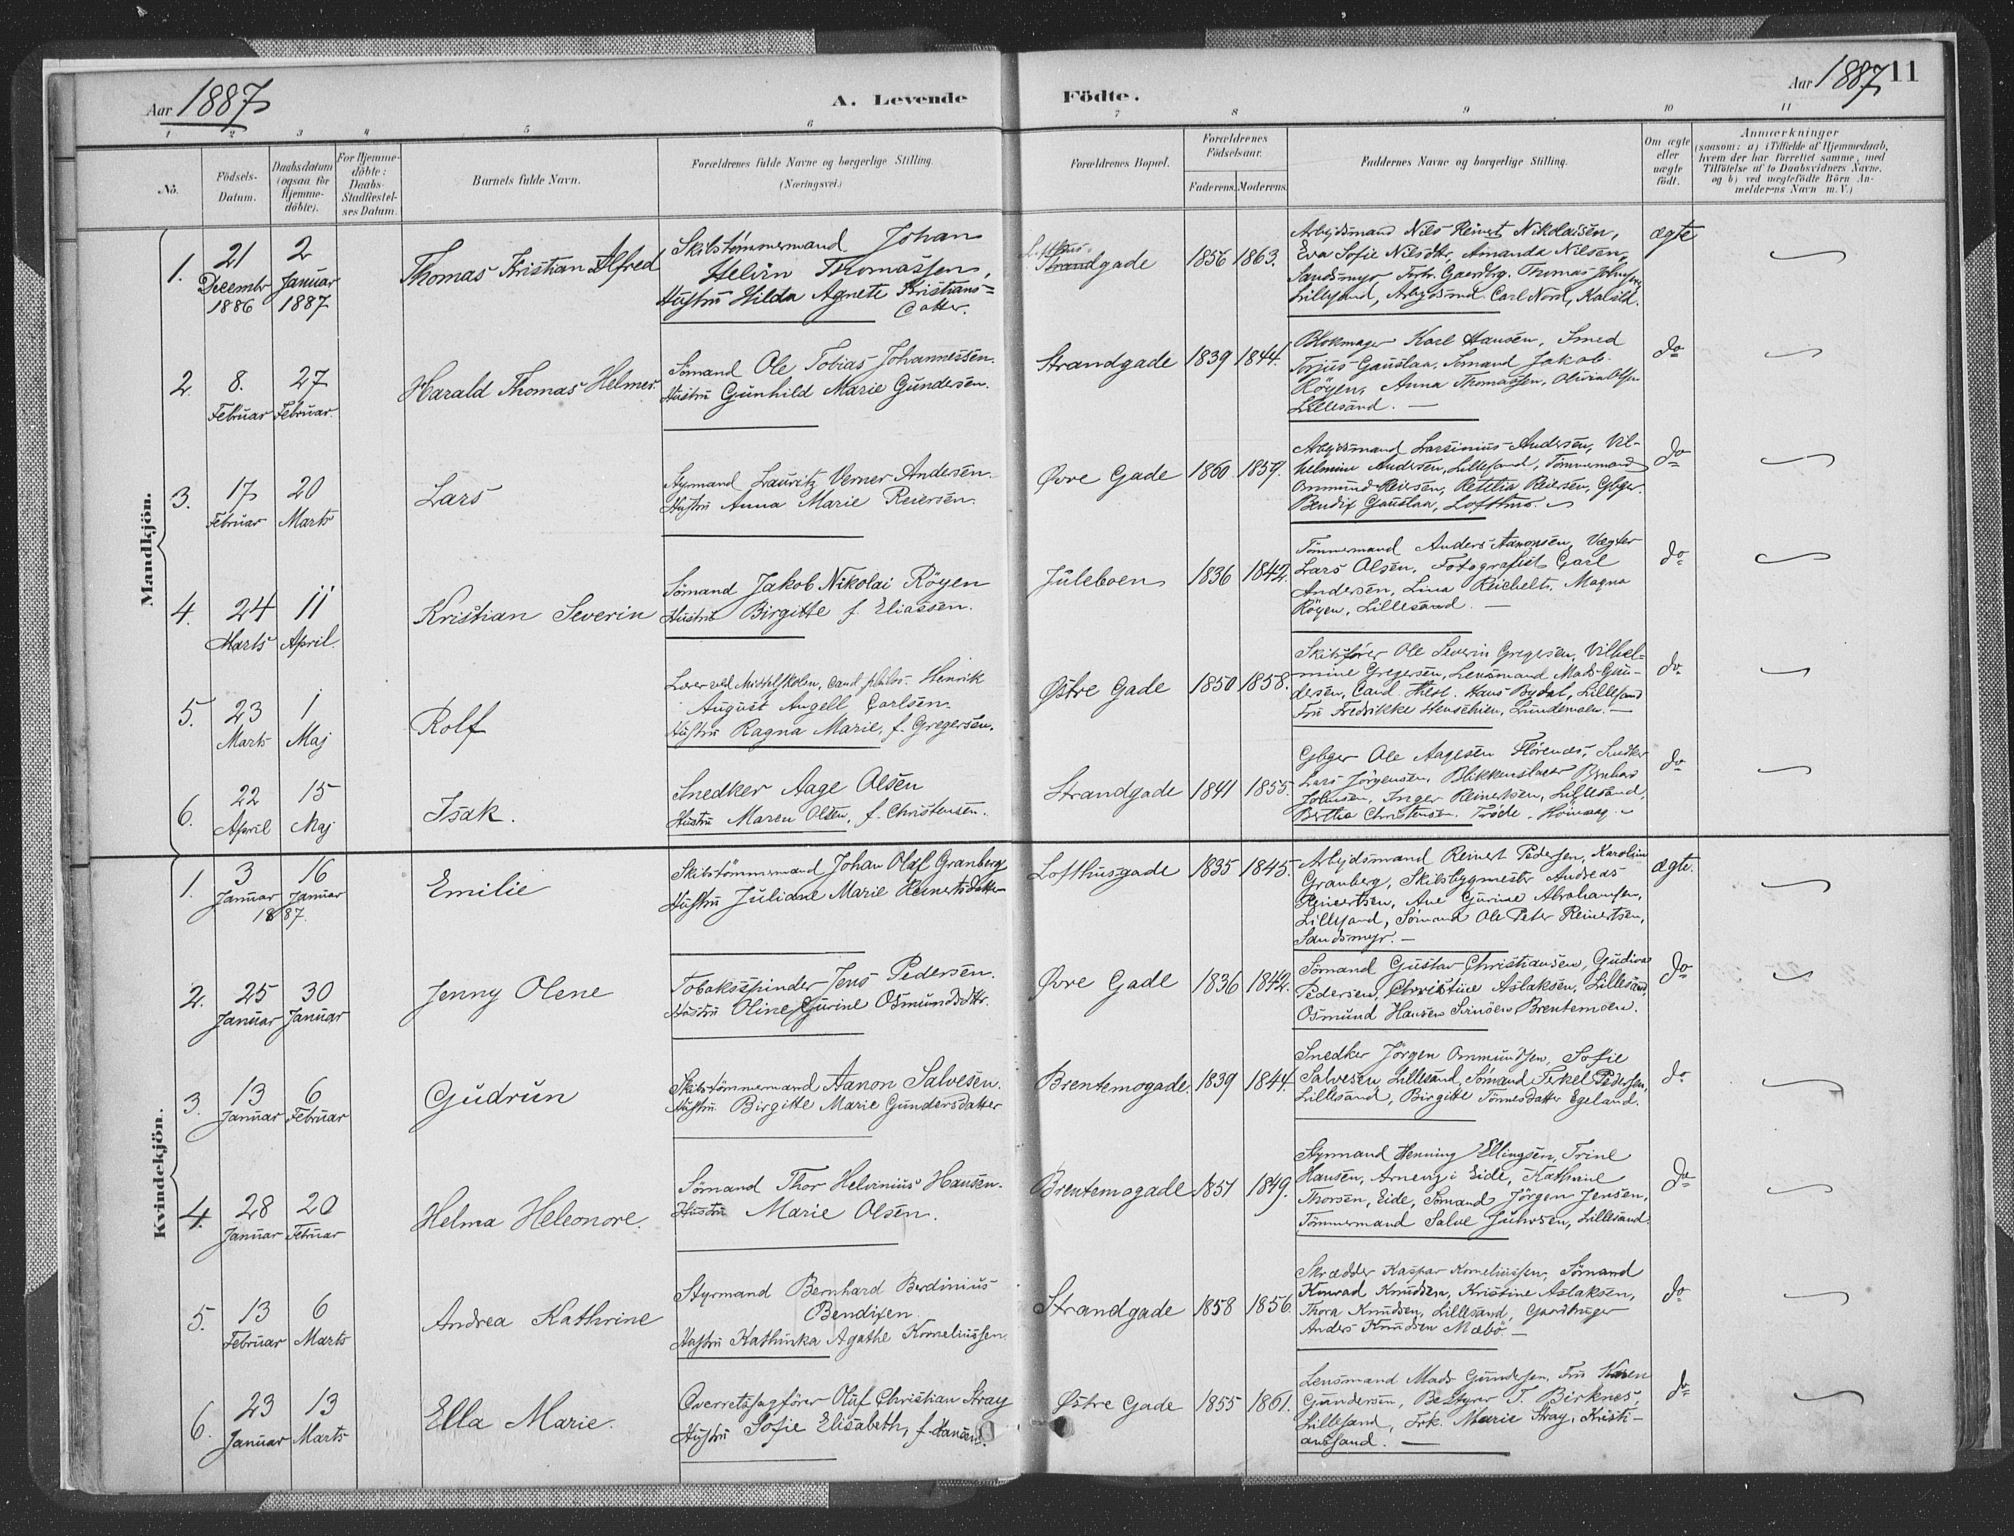 Aar 1887
A. Levende Födte.
Aar 1887
11
1 2 3 4 5 6 7 8 9 10 11
No.
Födsels-Datum.
Daabsdatum (ogsaa for Hjemme-döbte).
For Hjemme-döbte: Daabs-Stadfæstel-ses Datum.
Barnets fulde Navn.
Forældrenes fulde Navne og borgerlige Stilling.
(Næringsvei.)
Forældrenes Bopæl.
Forældrenes Födselsaar.
Faderens. Moderens.
Faddernes Navne og borgerlige Stilling.
Om ægte eller uægte födt.
Anmærkninger
(saasom: a) i Tilfælde af Hjemmedaab, hvem der har forrettet samme, med Tilföielse af to Daabsvidners Navne, og b) ved uægtefödte Börn An-melderens Navn m. V.)
Mandkjön.
1. 21 Decembr 1886 2 Januar 1887
Thomas Kristian Alfred
Skibstømmermand Johan
Helvin Thomassen,
Hustru Hilda Agnete Kristians=
datter.
Strandgade 1856 1863.
Arbejdsmand Nils Reinert Nikolaisen,
Eva Sofie Nilsdtr, Amanda Nilsen,
Sandsmyr
Lillesand, Arbejdsmd. Carl Nord, Kalvild.
ægte
2. 8. Februar 27 Februar
Harald Thomas Helmer
Sömand Ole Tobias Johannessen.
Hustru Gunhild Marie Gundersen.
Strandgade 1839 1844.
Blokmager Karl Hansen, Smed
Torjus Gauslaa, Sömand Jakob
Röyen, Anna Thomassen, Olivia Olsen
Lillesand. —
do
3. 17 Februar 20 Marts
Lars
Styrmand Lauritz Verner Andersen.
Hustru Anna Marie Reiersen.
Övre Gade 1860 1859.
Arbejdsmand Larsinius Andersen, Vil-
helmine Andersen, Lillesand, Tømmermand
Ommund Reiersen, Reiersen, Gbgr.
Bendix Gauslaa, Lofthus.
do
4. 24 Marts 11 April.
Kristian Severin
Sömand Jakob Nikolai Röyen
Hustru Birgitte f. Eliassen.
Juleboen 1836 1842.
Tömmermand Anders Aanonsen, Vægter
Lars Olsen, Fotografist Carl
Andersen, Lina Reichelt, Magna
Röyen, Lillesand. —
do
5. 23 Marts 1 Maj
Rolf
Lærer ved Middelskolen, Cand. philos. Henrik
August Angell Carlsen.
Hustru Ragna Marie, f. Gregersen.
Östre Gade 1850 1858.
Skibsfører Ole Severin Gregersen, Vilhel=
mine Gregersen, Lensmand Mads Gun-
dersen, Cand. theol. Hans Bydal, Lillesand
Fru Fredrikke Henschien, Lundemoen. —
do
6. 22 April 15 Maj
Isak.
Snedker Aage Olsen
Hustru Maren Olsen, f. Christensen.
Strandgade 1841 1855.
Gbgr Ole Aagesen Flörenes, Snedker
Lars Jörgensen, Blikkenslager Bernhard
Johnsen, Inger Reinertsen, Lillesand,
Berthe Christensen. Trøde. Hövaag.
do
Kvindekjön.
1. 3 Januar 16 Januar 1887.
Emilie
Skibstömmermand Johan Olaf Granberg
Hustru Juliane Marie Reinertsdatter
Lofthusgade 1835 1845.
Arbejdsmand Reinert Pedersen, Karoline
Granberg, Skibsbygmester Andreas
Reinertsen, Ane Gurine Abrahamsen,
Lillesand, Sömand Ole Peter Reinertsen,
Sandsmyr. —
ægte.
2. 25 Januar 30 Januar
Jenny Olene
Tobakspinder Jens Pedersen.
Hustru Oline Gurine Osmundsdtr.
Övre Gade 1836 1842.
Sömand Gustav Christiansen, Gudine
Pedersen, Christine Aslaksen, Lillesand,
Osmund Hansen Brentemoen.
do
3. 13 Januar 6 Februar
Gudrun
Skibstömmermand Aanon Salvesen.
Hustru Birgitte Marie Gundersdatter
Brentemogade. 1839 1844.
Snedker Jörgen Ommundsen, Sofie
Salvesen, Lillesand, Sömand Terkel Pedersen,
Lillesand, Birgitte Tönnesdatter Egeland.
do
4. 28 Januar 20 Februar
Helma Heleonore.
Sömand Thor Helvinius Hansen.
Hustru Marie Olsen.
Brentemogade. 1851 1849.
Styrmand Henning Ellingsen, Trine
Hansen, Arnevig i Eide, Kathrine
Thorsen, Eide, Sömand Jörgen Jensen,
Tömmermand Salve Juhrsen, Lillesand.
do
5. 13 Februar 6 Marts
Andrea Kathrine
Styrmand Bernhard Berdinius
Bendixen
Hustru Kathinka Agathe Korneliussen.
Strandgade 1858 1856.
Skrædder Kaspar Korneliussen, Sömand
Konrad Knudsen, Kristine Aslaksen,
Thora Knudsen, Lillesand, Gaardbruger
Anders Knudsen Mæbö —
do
6. 23 Januar 13 Marts
Ella Marie.
Overretssagförer Oluf Christian Stray
Hustru Sofie Elisabeth, f. Hansen.
Östre Gade 1855 1861.
Lensmand Mads Gundersen, Fru Karen
Gundersen, Bestyrer T. Birknes,
Lillesand, Frk. Marie Stray, Kristi-
ansand. —
do